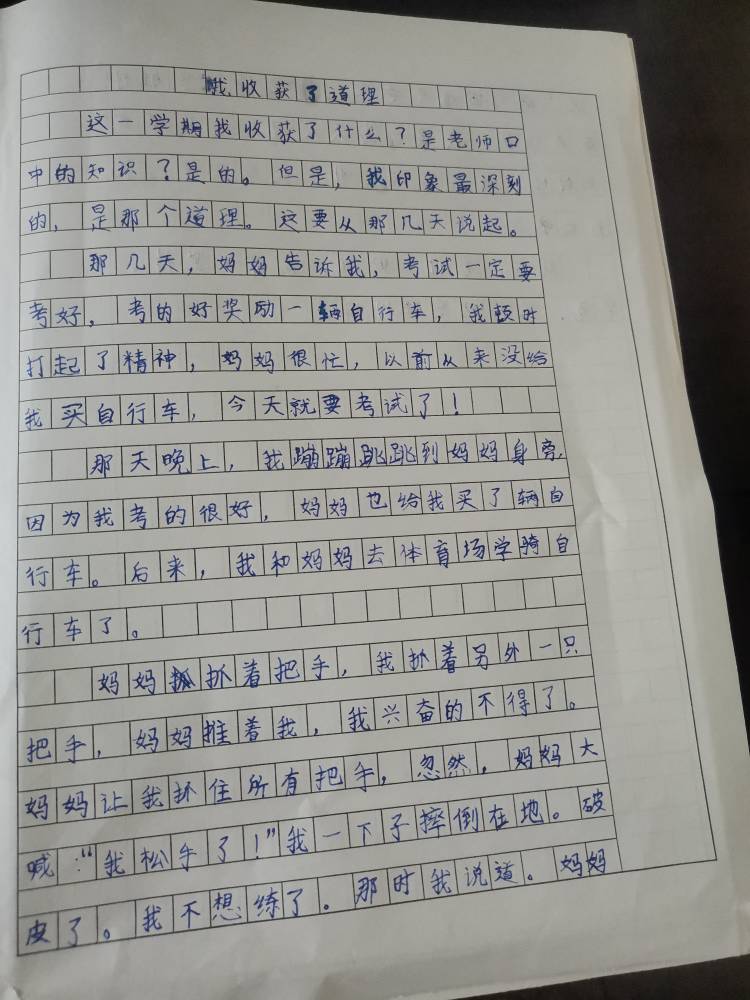 我收获了道理
这一学期我收获了什么?是老师口
中的知识?是的。但是,我印象最深刻
的,是那个道理。这要从那几天说起。
那几天,妈妈告诉我,考试一定要
考好,考的好奖励一辆自行车,我顿时
打起了精神,妈妈很忙,以前从来没给
我买自行车,今天就要考试了!
那天晚上,我蹦蹦跳跳到妈妈身旁,
因为我考的很好,妈妈也给我买了辆自
行车。后来,我和妈妈去体育场学骑自
行车了。
妈妈抓着把手,我抓着另外一只
把手,妈妈推着我,我兴奋的不得了。
妈妈让我抓住所有把手,忽然,妈妈大
喊:“我松手了!”我一下子摔倒在地。破
皮了。我不想练了。那时我说道。妈妈